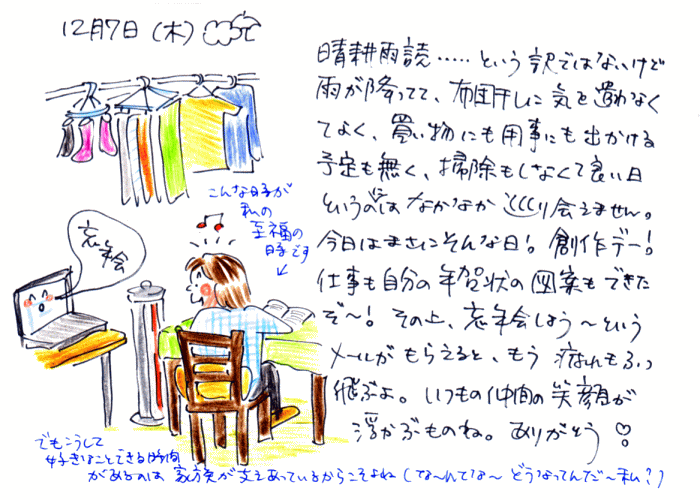 12月7日(木)
晴耕雨読……という訳ではないけど
雨が降ってて、布団干しに気を遣わなく
てよく、買い物にも用事にも出かける
予定も無く、掃除もしなくて良い日
というのはなかなか めぐり会えません。
今日はまさにそんな日!創作デー!
仕事も自分の年賀状の図案もできた
ぞ〜!その上、忘年会しよう〜という
メールがもらえると、もう 疲れもふっ
飛ぶよ。いつもの仲間の笑顔が
浮かぶものね。ありがとう♡
こんな時が
私の
至福の
時です
忘年会
でもこうして
好きなことできる時間
があるのは 家族が支えあっているからこそよね(な〜んてな〜 どうなってんだ〜私?)